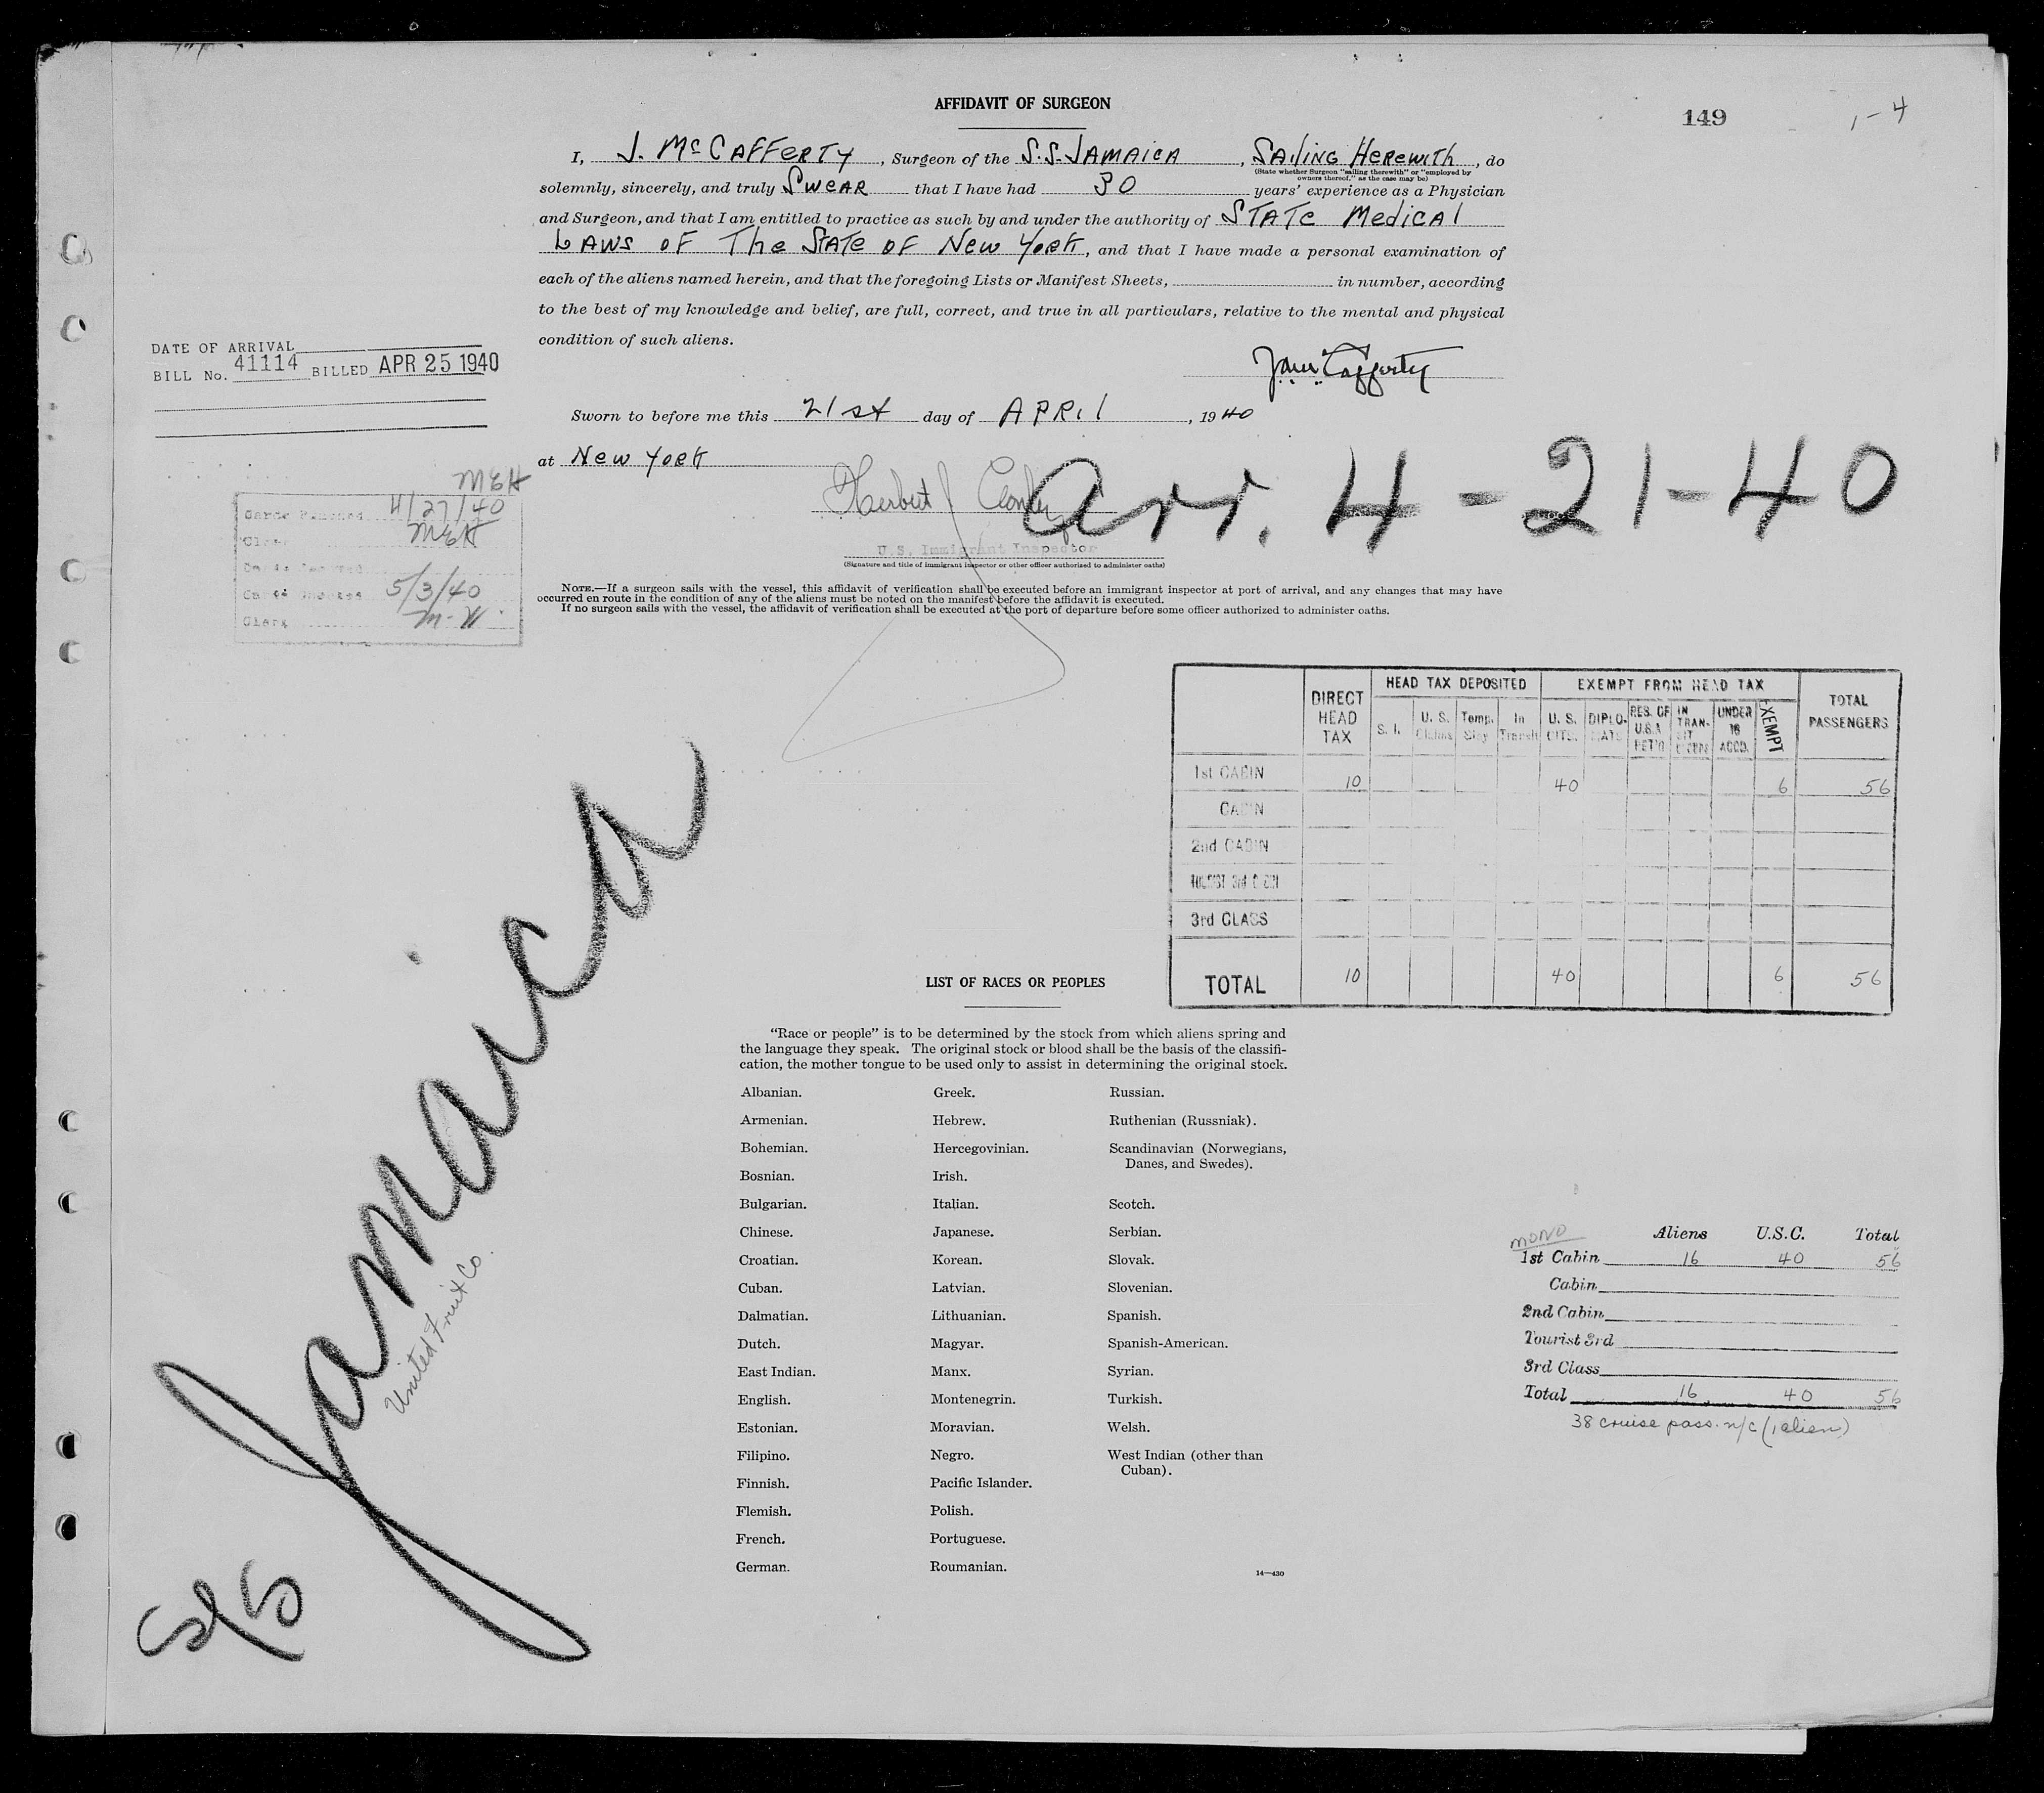 AFFIDAVIT OF SURGEON
149
1-4
I, J. McCAFFERTY, Surgeon of the S.S. JAMAICA, SAILING HEREWITH, do
(State whether Surgeon "sailing therewith" or "employed by
owners thereof," as the case may be)
solemnly, sincerely, and truly SWEAR that I have had 30 years' experience as a Physician
and Surgeon, and that I am entitled to practice as such by and under the authority of STATE MEDICAL
LAWS OF THE STATE OF NEW YORK, and that I have made a personal examination of
each of the aliens named herein, and that the foregoing Lists or Manifest Sheets, in number, according
to the best of my knowledge and belief, are full, correct, and true in all particulars, relative to the mental and physical
condition of such aliens.
DATE OF ARRIVAL
BILL No. 41114 BILLED APR 25 1940
Sworn to before me this 21st day of APRIL, 1940
at New York
Herbert J
arr. 4-21-40
U.S. Immigrant Inspector
(Signature and title of immigrant inspector or other officer authorized to administer oaths)
MEH
4/27/40
MEH
5/3/40
Clerk M-W
NOTE.—If a surgeon sails with the vessel, this affidavit of verification shall be executed before an immigrant inspector at port of arrival, and any changes that may have
occurred en route in the condition of any of the aliens must be noted on the manifest before the affidavit is executed.
If no surgeon sails with the vessel, the affidavit of verification shall be executed at the port of departure before some officer authorized to administer oaths.
DIRECT HEAD TAX
HEAD TAX DEPOSITED
EXEMPT FROM HEAD TAX
TOTAL PASSENGERS
S. I. U. S. Claims Temp. Stay In Transit U. S. CITS. DIPLOMATS RES. OF U.S.A RET'G IN TRANSIT UNDER 16 ACCD. EXEMPT
1st CABIN 10 40 6 56
CABIN
2nd CABIN
TOURIST 3rd CABIN
3rd CLASS
TOTAL 10 40 6 56
Jamaica
United Fruit Co.
LIST OF RACES OR PEOPLES
"Race or people" is to be determined by the stock from which aliens spring and
the language they speak. The original stock or blood shall be the basis of the classifi-
cation, the mother tongue to be used only to assist in determining the original stock.
Albanian.
Armenian.
Bohemian.
Bosnian.
Bulgarian.
Chinese.
Croatian.
Cuban.
Dalmatian.
Dutch.
East Indian.
English.
Estonian.
Filipino.
Finnish.
Flemish.
French.
German.
Greek.
Hebrew.
Hercegovinian.
Irish.
Italian.
Japanese.
Korean.
Latvian.
Lithuanian.
Magyar.
Manx.
Montenegrin.
Moravian.
Negro.
Pacific Islander.
Polish.
Portuguese.
Roumanian.
Russian.
Ruthenian (Russniak).
Scandinavian (Norwegians,
Danes, and Swedes).
Scotch.
Serbian.
Slovak.
Slovenian.
Spanish.
Spanish-American.
Syrian.
Turkish.
Welsh.
West Indian (other than
Cuban).
14—430
MONO
Aliens U.S.C. Total
1st Cabin 16 40 56
Cabin
2nd Cabin
Tourist 3rd
3rd Class
Total 16 40 56
38 cruise pass. n/c (1 alien)